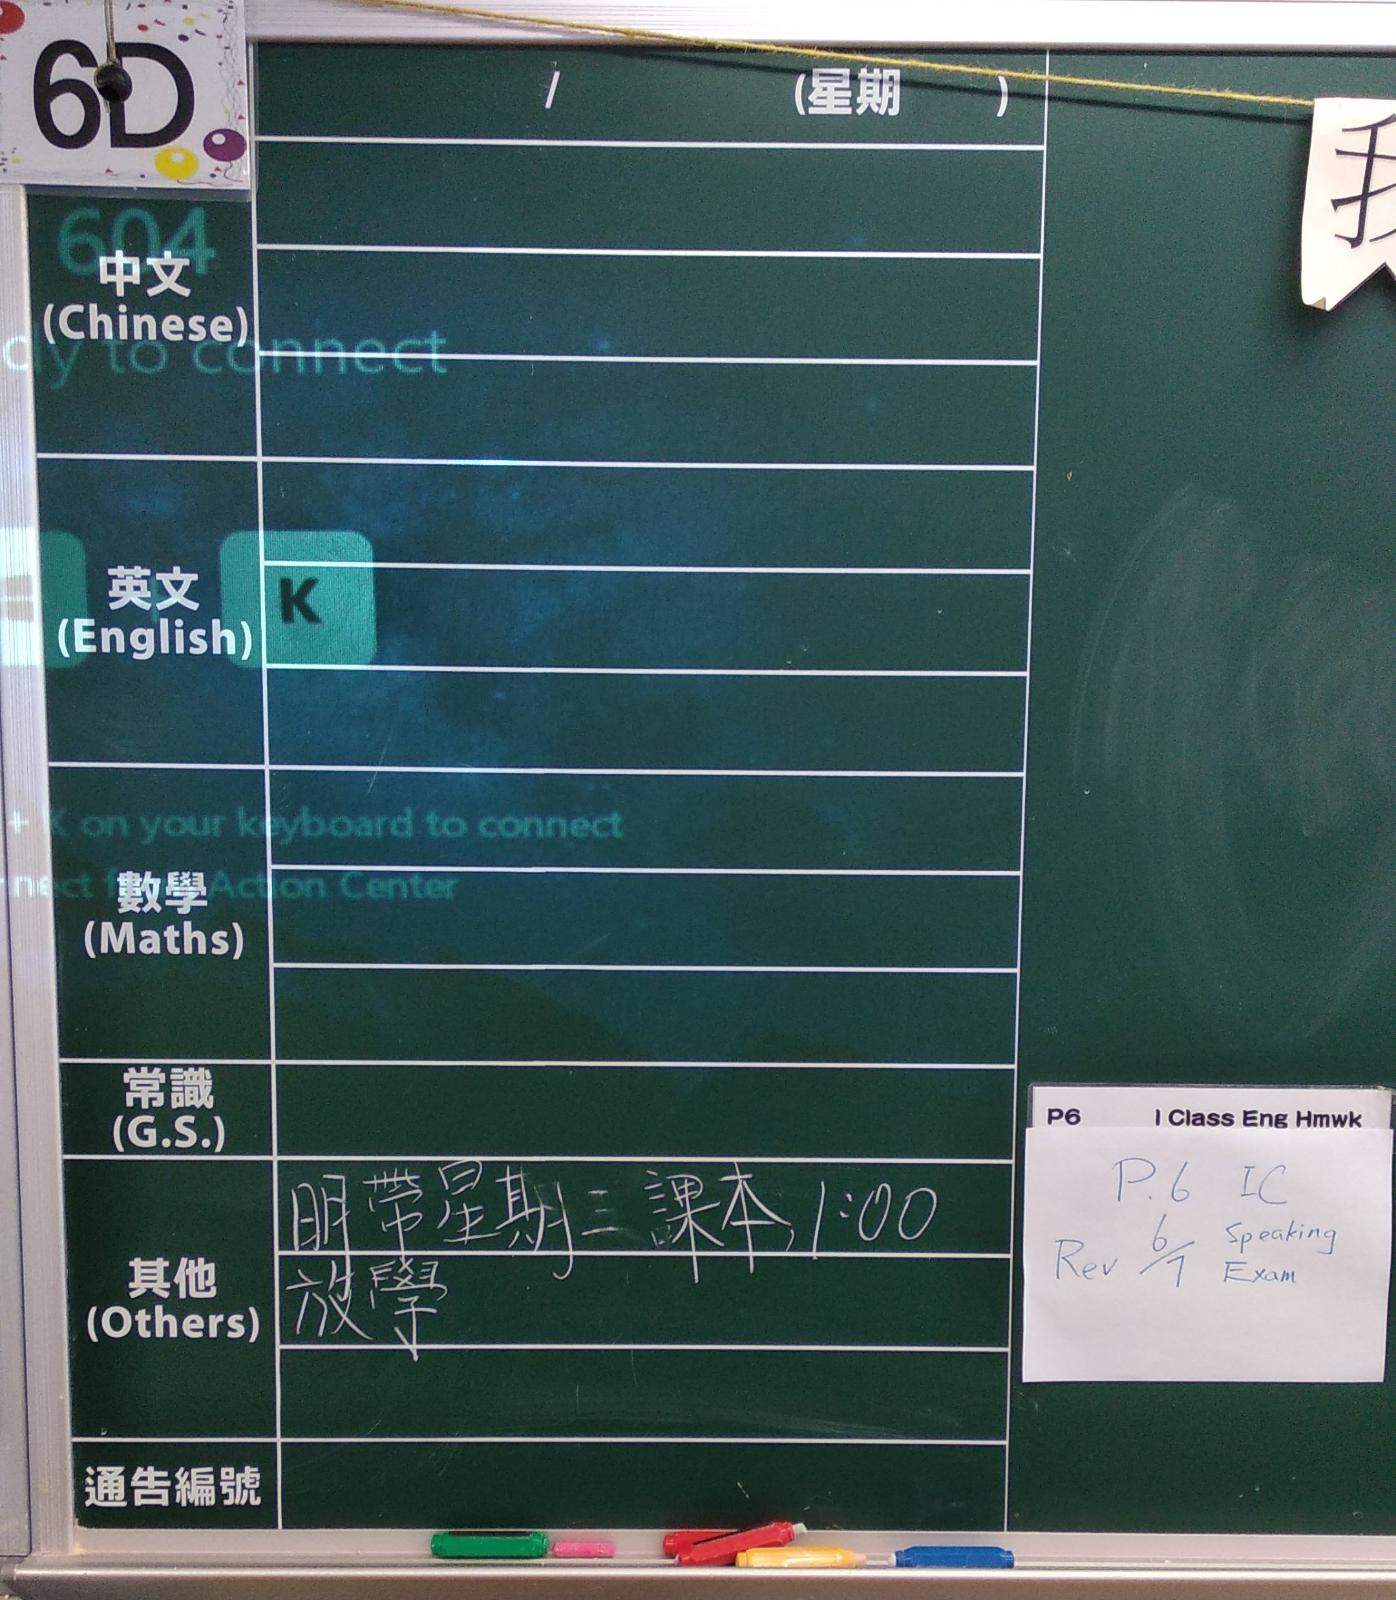 6D
/ (星期 )
我
604
中文
(Chinese)
dy to connect
英文
(English)
K
+ K on your keyboard to connect
數學
nnect Action Center
(Maths)
常識
(G.S.)
P6 I Class Eng Hmwk
明帶星期三課本, 1:00
放學
P.6 IC
Rev 6/7 Speaking
Exam
其他
(Others)
通告編號